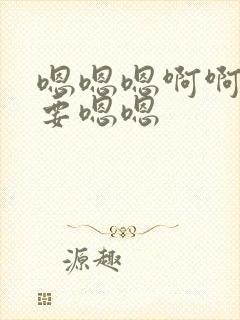 嗯嗯嗯啊啊
要嗯嗯
源趣